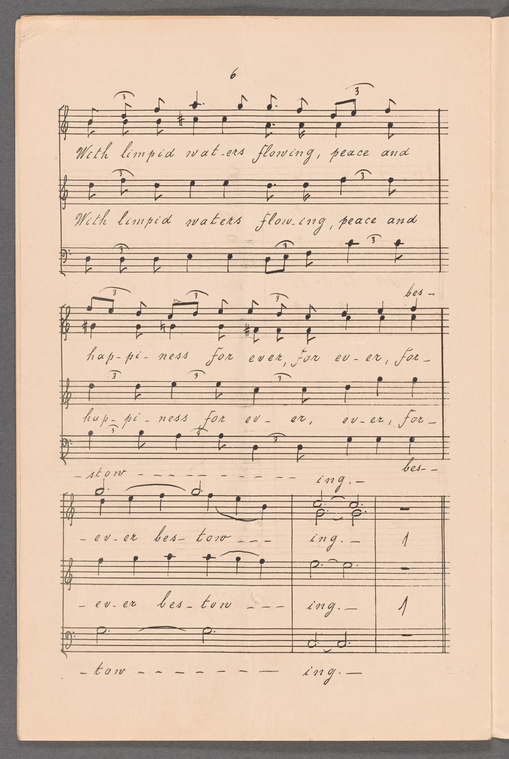 6
3 3
With limpid wat-ers flowing, peace and
3 3
With limpid waters flow-ing, peace and
3 3 3
bes-
3 3 3
hap-pi-ness for ever, for ev-er, for-
3 3 3
hap-pi-ness for ev-er, ev-er, for-
3 3 3
bes--
-stow - - - - - - - - - ing.-
-ev-er bes-tow - - - ing.- 1
-ev-er bes-tow - - - ing.- 1
-tow - - - - - - - - ing.-